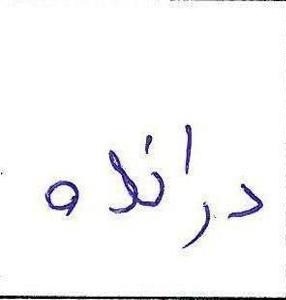 درانلاه